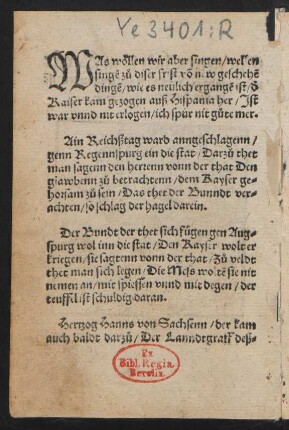 Ye 3401:R
WAs wöllen wir aber singen/wellen
singē zů diser frist vō n w geschehē
dingē/wie es neulich ergangē ist/d
Kaiser kam gezogen auß Hispania her/Ist
war vnnd nit erlogen/ich spür nit gůte mer.
Ain Reichßtag ward anngeschlagenn/
genn Regennspurg ein die stat/Darzů thet
man sagenn den herrenn vonn der that Den
glawbenn zů betrachtenn/dem Kayser ge-
horsam zů sein/Das thet der Bunndt ver-
achten/so schlag der hagel darein.
Der Bundt der thet sich fügen gen Aug-
spurg wol inn die stat/Den Kayser wolt er
kriegen/sie sagtenn vonn der that/Zů veldt
thet man sich legen/Die Mess woltē sie nit
nemen an/mit spiessen vnnd mit degen/der
teuffel ist schuldig daran.
Hertzog Hanns von Sachsenn/der kam
auch baldt darzů/Der Lanndtgraff deß-
Ex
Bibl. Regia
Berolin.